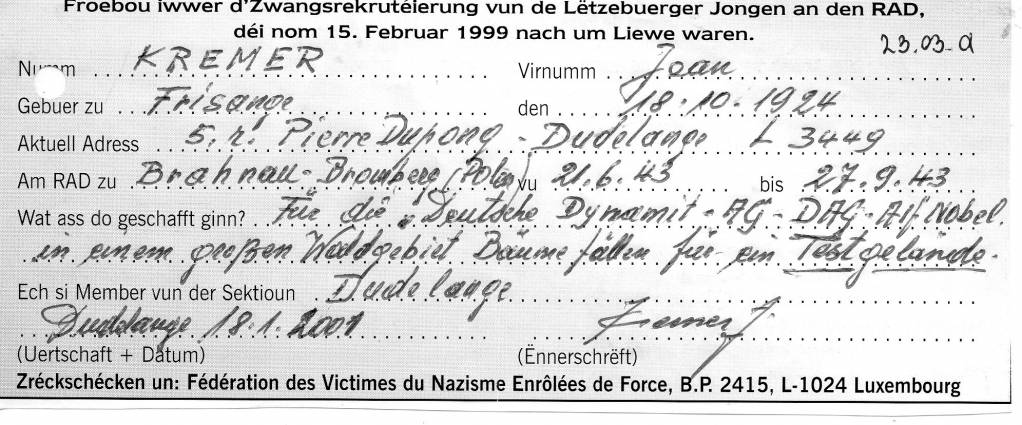 Froebou iwwer d'Zwangsrekrutéierung vun de Lëtzebuerger Jongen an den RAD,
déi nom 15. Februar 1999 nach um Liewe waren.
23.03.a
Numm KREMER Virnumm Jean
Gebuer zu Frisange den 18.10.1924
Aktuell Adress 5, r. Pierre Dupong - Dudelange L 3449
Am RAD zu Brahnau-Bromberg (Polen) vu 21.6.43 bis 27.9.43
Wat ass do geschafft ginn? Für die "Deutsche Dynamit-AG-DAG-Alf Nobel.
in einem großen Waldgebiet Bäume fällen für ein Testgelände.
Ech si Member vun der Sektioun Dudelange
Dudelange 18.1.2001 Kremer J.
(Uertschaft + Datum) (Ënnerschrëft)
Zréckschécken un: Fédération des Victimes du Nazisme Enrôlées de Force, B.P. 2415, L-1024 Luxembourg